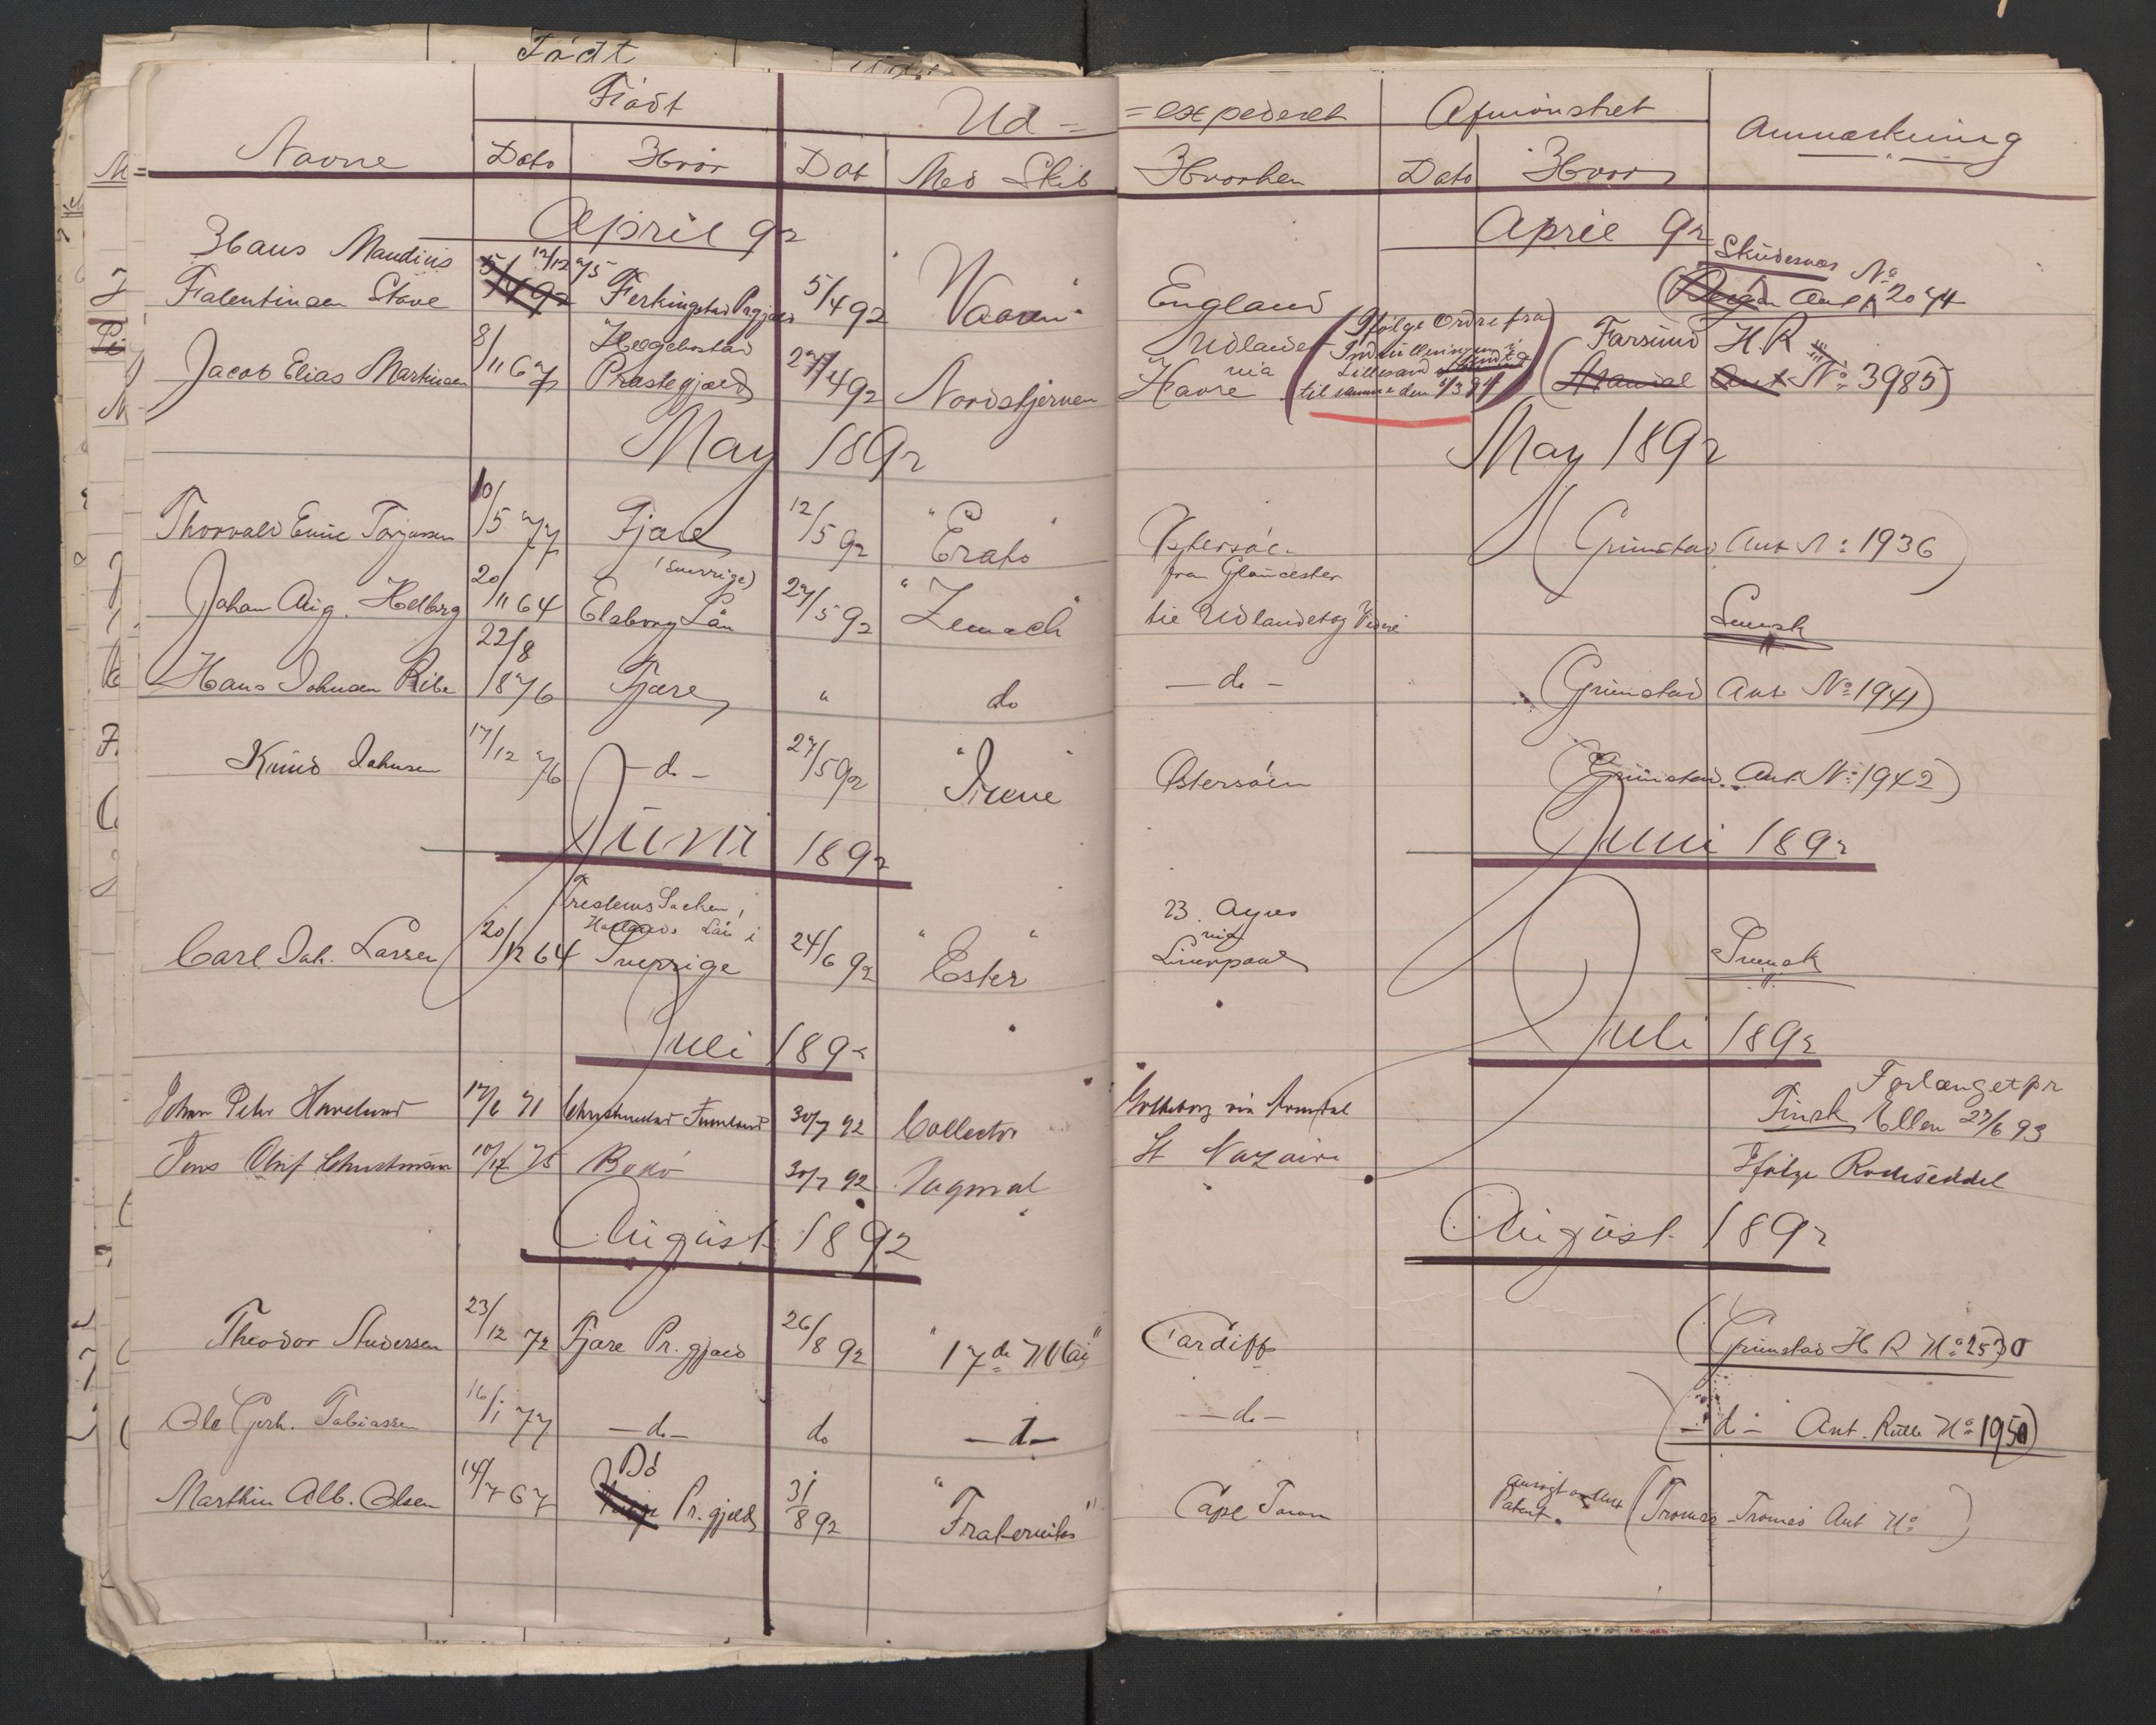 Födt
Födt Ud= =expederet Afmönstret Anmærkning
Navne Dato Hvor Dat Med Skib Hvorhen Dato Hvor
April 92 April 92
Hans Maudius 12/12 75 Skudesnæs No
Falentinsen Stave 5/4 92 Ferkingstad Prgjæld 5/4 92 "Vaaren" England (Bergen Ant 2074
Hægebostad Udlandet (Ifølge Ordre fra Farsund H.R
Jacob Elias Martinsen 8/11 67 Præstegjæld 27/4 92 Nordstjernen via Havre Indrulleringen i Lillesand til samme den 1/3 94) (Mandal Ant No 3985)
May 1892 May 1892
Thorvald Emil Torjussen 10/5 77 Fjære 12/5 92 "Erato" Østersöen (Grimstad Ant N: 1936)
(Sverrige) fra Gloucester
Johan Aug. Helberg 20/11 64 Elsborg Län 27/5 92 "Zemach" til Udlandet og Videre Svensk
22/8
Hans Johnsen Ribe /8 76 Fjære " do - do - (Grimstad Ant No 1941)
Knud Johnsen 17/12 76 - do - 27/5 92 "Irene" Østersöen (Grimstad Ant. No: 1942)
Juni 1892 Juni 1892
Hallands Län i B. Ayres
Carl Joh. Larsen 20/12 64 Sverrige 24/6 92 "Ester" via Liverpool Svensk
Juli 1892 Juli 1892
Forlænget pr
Johan Peter Havelund 17/6 71 Christinestad Finnland 30/7 92 Collector Gotheborg via Arendal Finsk Ellen 27/6 93
Jens Oluf Christensen 10/12 75 Bodö 30/7 92 Dagmar St Nazaire Ifølge Rulleseddel
August 1892 August 1892
Theodor Andersen 23/12 72 Fjære Pr. gjæld 26/8 92 "17de Mai" Cardiff (Grimstad H R No: 2530
Ole Gerh. Tobiassen 16/1 77 - do - do - d - - do - (- do - Ant. Rulle No 1950)
Dö
Marthin Alb. Olsen 14/7 67 Pr. gjeld 31/8 92 "Fraternitas" Cape Town Patent. (Tromsö - Tromsö Ant No )